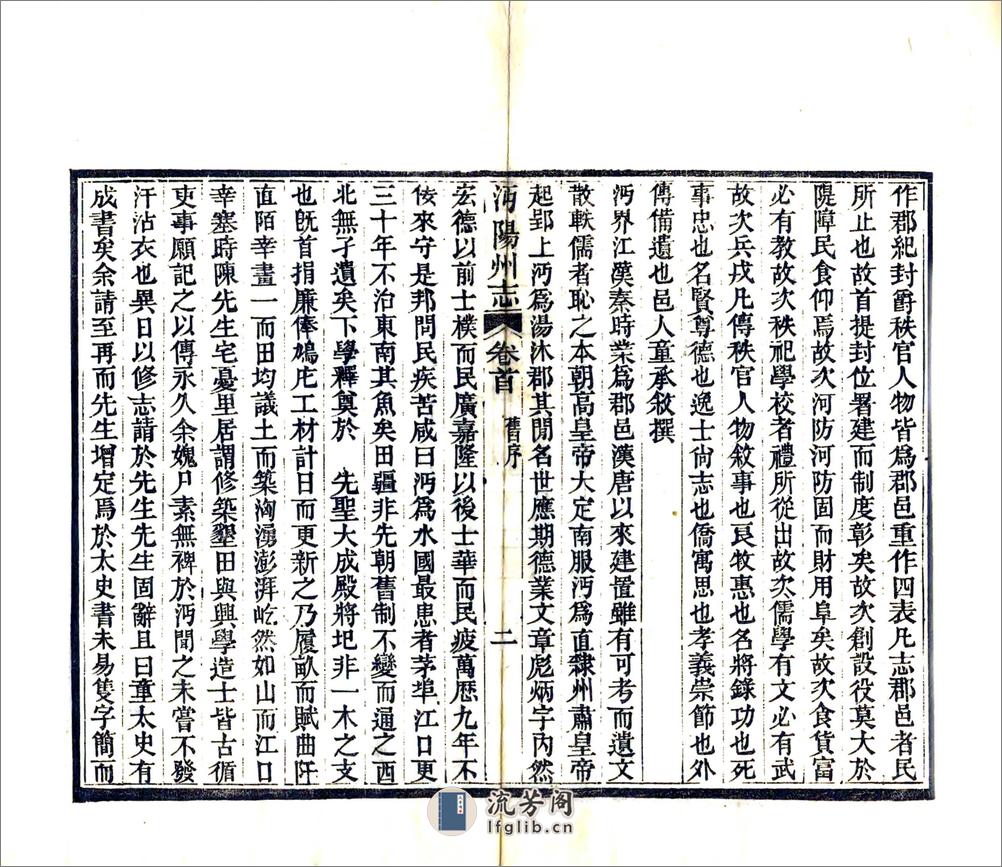 作郡紀封爵秩官人物皆爲郡邑重作四表凡志郡邑者民
所止也故首提封位署建而制度彰矣故次創設役莫大於
隄障民食仰焉故次河防河防固而財用阜矣故次食貨富
必有教故次秩祀學校者禮所從出故次儒學有文必有武
故次兵戎凡傳秩官人物敘事也良牧惠也名將錄功也死
事忠也名賢尊德也逸士尚志也僑寓思也孝義崇節也外
傳備遺也邑人童承敘撰
沔界江漢秦時業爲郡邑漢唐以來建置雖有可考而遺文
散軼儒者恥之本朝高皇帝大定南服沔爲直隸州肅皇帝
起郢上沔爲湯沐郡其閒名世應期德業文章彪炳宇內然
沔陽州志 卷首 舊序 二
宏德以前士樸而民廣嘉隆以後士華而民疲萬歷九年不
佞來守是邦問民疾苦咸曰沔爲水國最患者茅埠江口更
三十年不治東南其魚矣田疆非先朝舊制不變而通之西
北無孑遺矣下學釋奠於 先聖大成殿將圯非一木之支
也旣首捐廉俸鳩庀工材計日而更新之乃履畝而賦曲阡
直陌幸畫一而田均議土而築洶湧澎湃屹然如山而江口
幸塞時陳先生宅憂里居謂修築墾田與興學造士皆古循
吏事願記之以傳永久余媿尸素無裨於沔聞之未嘗不發
汗沾衣也異日以修志請於先生先生固辭且曰童太史有
成書矣余請至再而先生增定焉於太史書未易隻字簡而
流芳閣
lfglib.cn